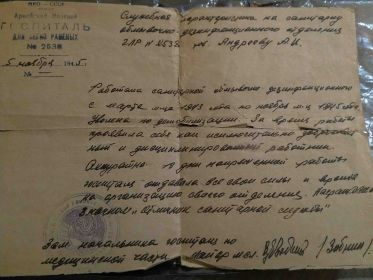 НКО - СССР
ГОСПИТАЛЬ
ДЛЯ ЛЕГКО РАНЕНЫХ
№ 2538
5 ноября 1945 г.
№
Служебная характеристика на санитарку
обмывочно-дезинфекционного отделения
Андрееву А.И.
Работала санитаркой обмывочно дезинфекционного
с марта м-ца 1943 года по ноябрь м-ц 1945 года
Уволена по демобилизации. За время работы
проявила себя как исключительно
и дисциплинированный работник
Аккуратна. в дни напряженной работы
отдавала все свои силы и время
на организацию своего отделения. Награждена
Значком "отличник санитарной службы"
Зам. начальника госпиталя по
медицинской части